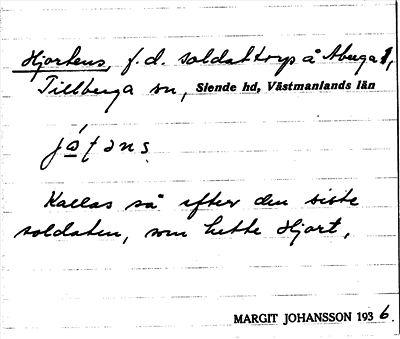 Hjortens, f.d. soldattorp å Åbyga 1,
Tillberga sn, Siende hd, Västmanlands län
jo̱ʹt ə n s
Kallas så efter den siste
soldaten, som hette Hjort.
MARGIT JOHANSSON 1936.